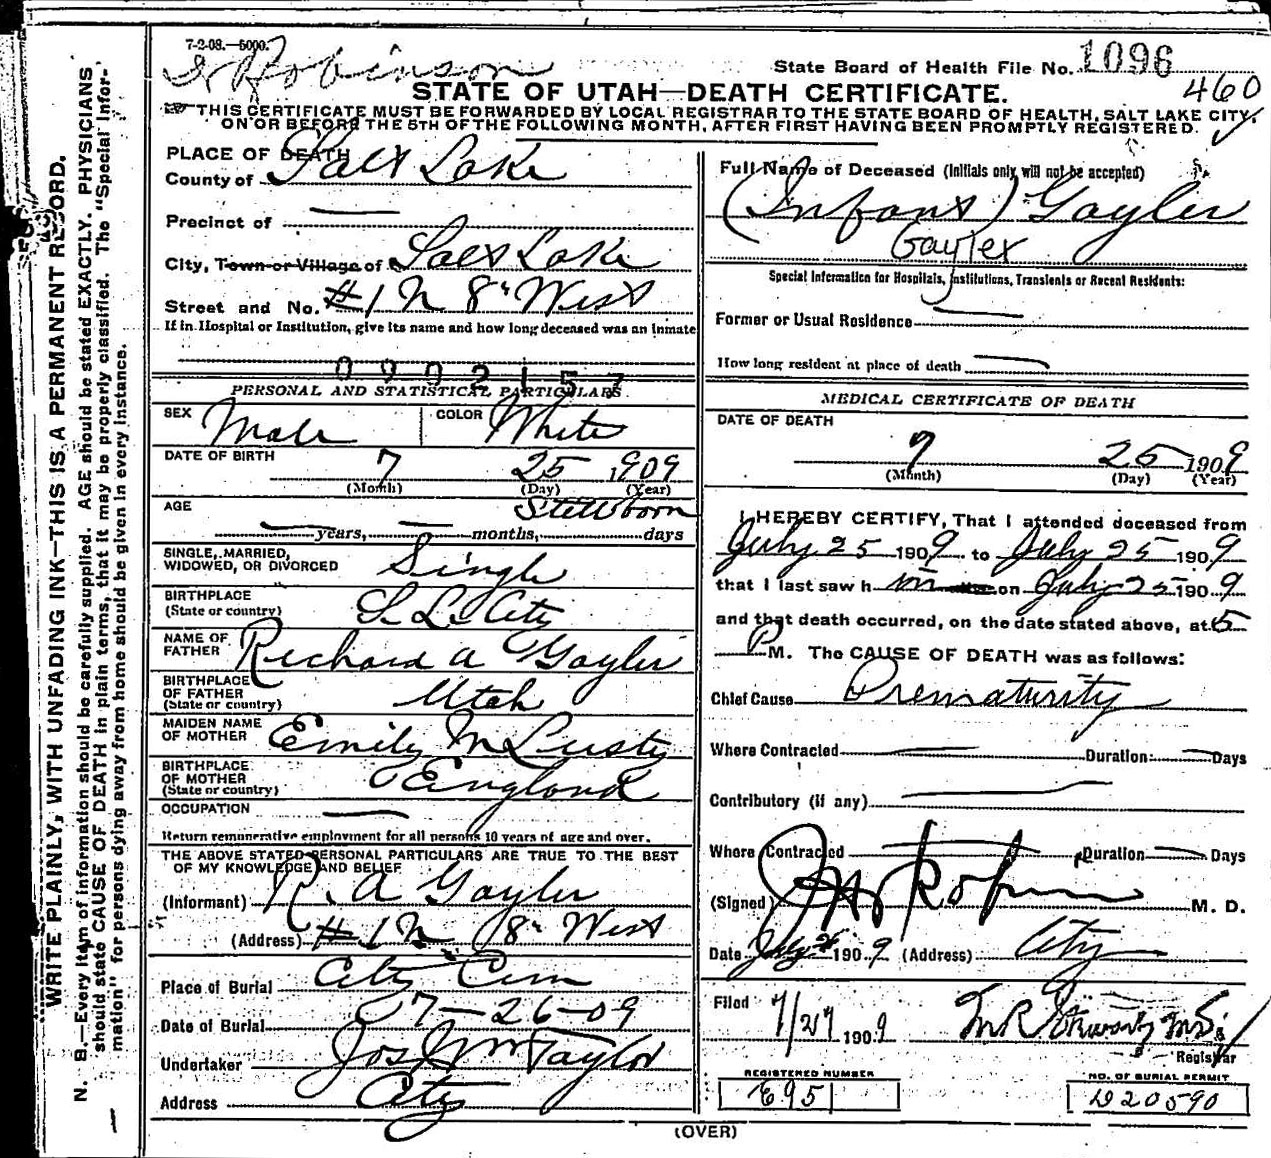 7-2-08.—5000.
Robinson
State Board of Health File No. 1096
460
STATE OF UTAH—DEATH CERTIFICATE.
THIS CERTIFICATE MUST BE FORWARDED BY LOCAL REGISTRAR TO THE STATE BOARD OF HEALTH, SALT LAKE CITY,
ON OR BEFORE THE 5TH OF THE FOLLOWING MONTH, AFTER FIRST HAVING BEEN PROMPTLY REGISTERED.
PLACE OF DEATH
County of Salt Lake
Precinct of —
City, Town or Village of Salt Lake
Street and No. #1 N 8" West
If in Hospital or Institution, give its name and how long deceased was an inmate
0902157
PERSONAL AND STATISTICAL PARTICULARS
SEX Male COLOR White
DATE OF BIRTH 7 25 1909
(Month) (Day) (Year)
AGE Stillborn
— years, — months, days
SINGLE, MARRIED,
WIDOWED, OR DIVORCED Single
BIRTHPLACE
(State or country) S. L. City
NAME OF
FATHER Richard A Gayler
BIRTHPLACE
OF FATHER
(State or country) Utah
MAIDEN NAME
OF MOTHER Emily M Lusty
BIRTHPLACE
OF MOTHER
(State or country) England
OCCUPATION —
Return remunerative employment for all persons 10 years of age and over.
THE ABOVE STATED PERSONAL PARTICULARS ARE TRUE TO THE BEST
OF MY KNOWLEDGE AND BELIEF
(Informant) R. A Gayler
(Address) #1 N 8" West
Place of Burial City Cem
Date of Burial 7-26-09
Undertaker Jos Wm Taylor
Address City
Full Name of Deceased (Initials only will not be accepted)
(Infant) Gayler
Gayler
Special Information for Hospitals, Institutions, Transients or Recent Residents:
Former or Usual Residence —
How long resident at place of death —
MEDICAL CERTIFICATE OF DEATH
DATE OF DEATH
7 25 1909
(Month) (Day) (Year)
I HEREBY CERTIFY, That I attended deceased from
July 25 1909 to July 25 1909
that I last saw h im on July 25 1909
and that death occurred, on the date stated above, at 5
P M. The CAUSE OF DEATH was as follows:
Chief Cause Prematurity
Where Contracted — Duration: — Days
Contributory (if any) —
Where Contracted — Duration — Days
(Signed) Robinson M. D.
Date July 1909 (Address) City
Filed 7/27 1909 M R Stewart M.D.
Registrar
REGISTERED NUMBER
E95
NO. OF BURIAL PERMIT
D20590
(OVER)
WRITE PLAINLY, WITH UNFADING INK—THIS IS A PERMANENT RECORD.
N. B.—Every item of information should be carefully supplied. AGE should be stated EXACTLY. PHYSICIANS
should state CAUSE OF DEATH in plain terms, that it may be properly classified. The "Special Infor-
mation" for persons dying away from home should be given in every instance.